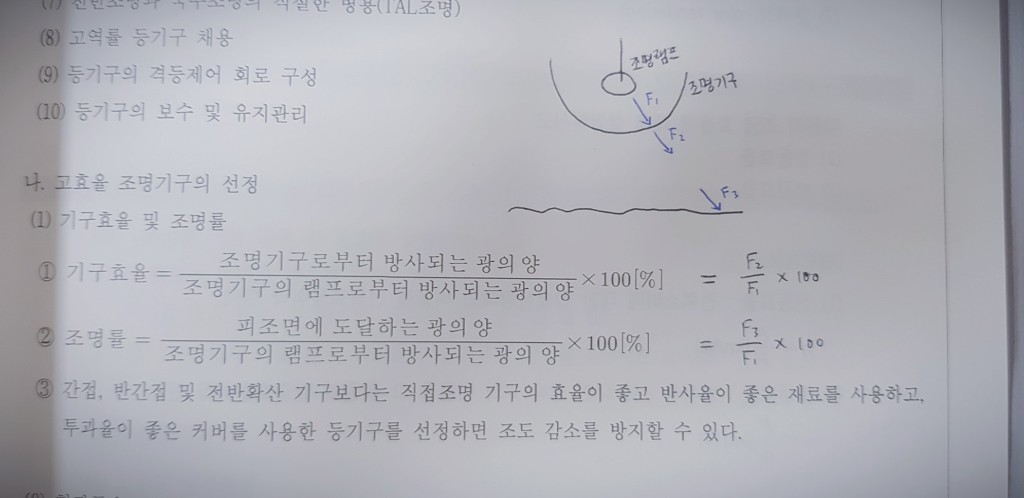 (7) 전반조명과 국부조명의 적절한 병용(TAL조명)
(8) 고역률 등기구 채용
(9) 등기구의 격등제어 회로 구성
(10) 등기구의 보수 및 유지관리
조명램프
조명기구
F₁
F₂
F₃
나. 고효율 조명기구의 선정
(1) 기구효율 및 조명률
① 기구효율 = 조명기구로부터 방사되는 광의 양 / 조명기구의 램프로부터 방사되는 광의 양 × 100[%] = F₂ / F₁ × 100
② 조명률 = 피조면에 도달하는 광의 양 / 조명기구의 램프로부터 방사되는 광의 양 × 100[%] = F₃ / F₁ × 100
③ 간접, 반간접 및 전반확산 기구보다는 직접조명 기구의 효율이 좋고 반사율이 좋은 재료를 사용하고,
투과율이 좋은 커버를 사용한 등기구를 선정하면 조도 감소를 방지할 수 있다.